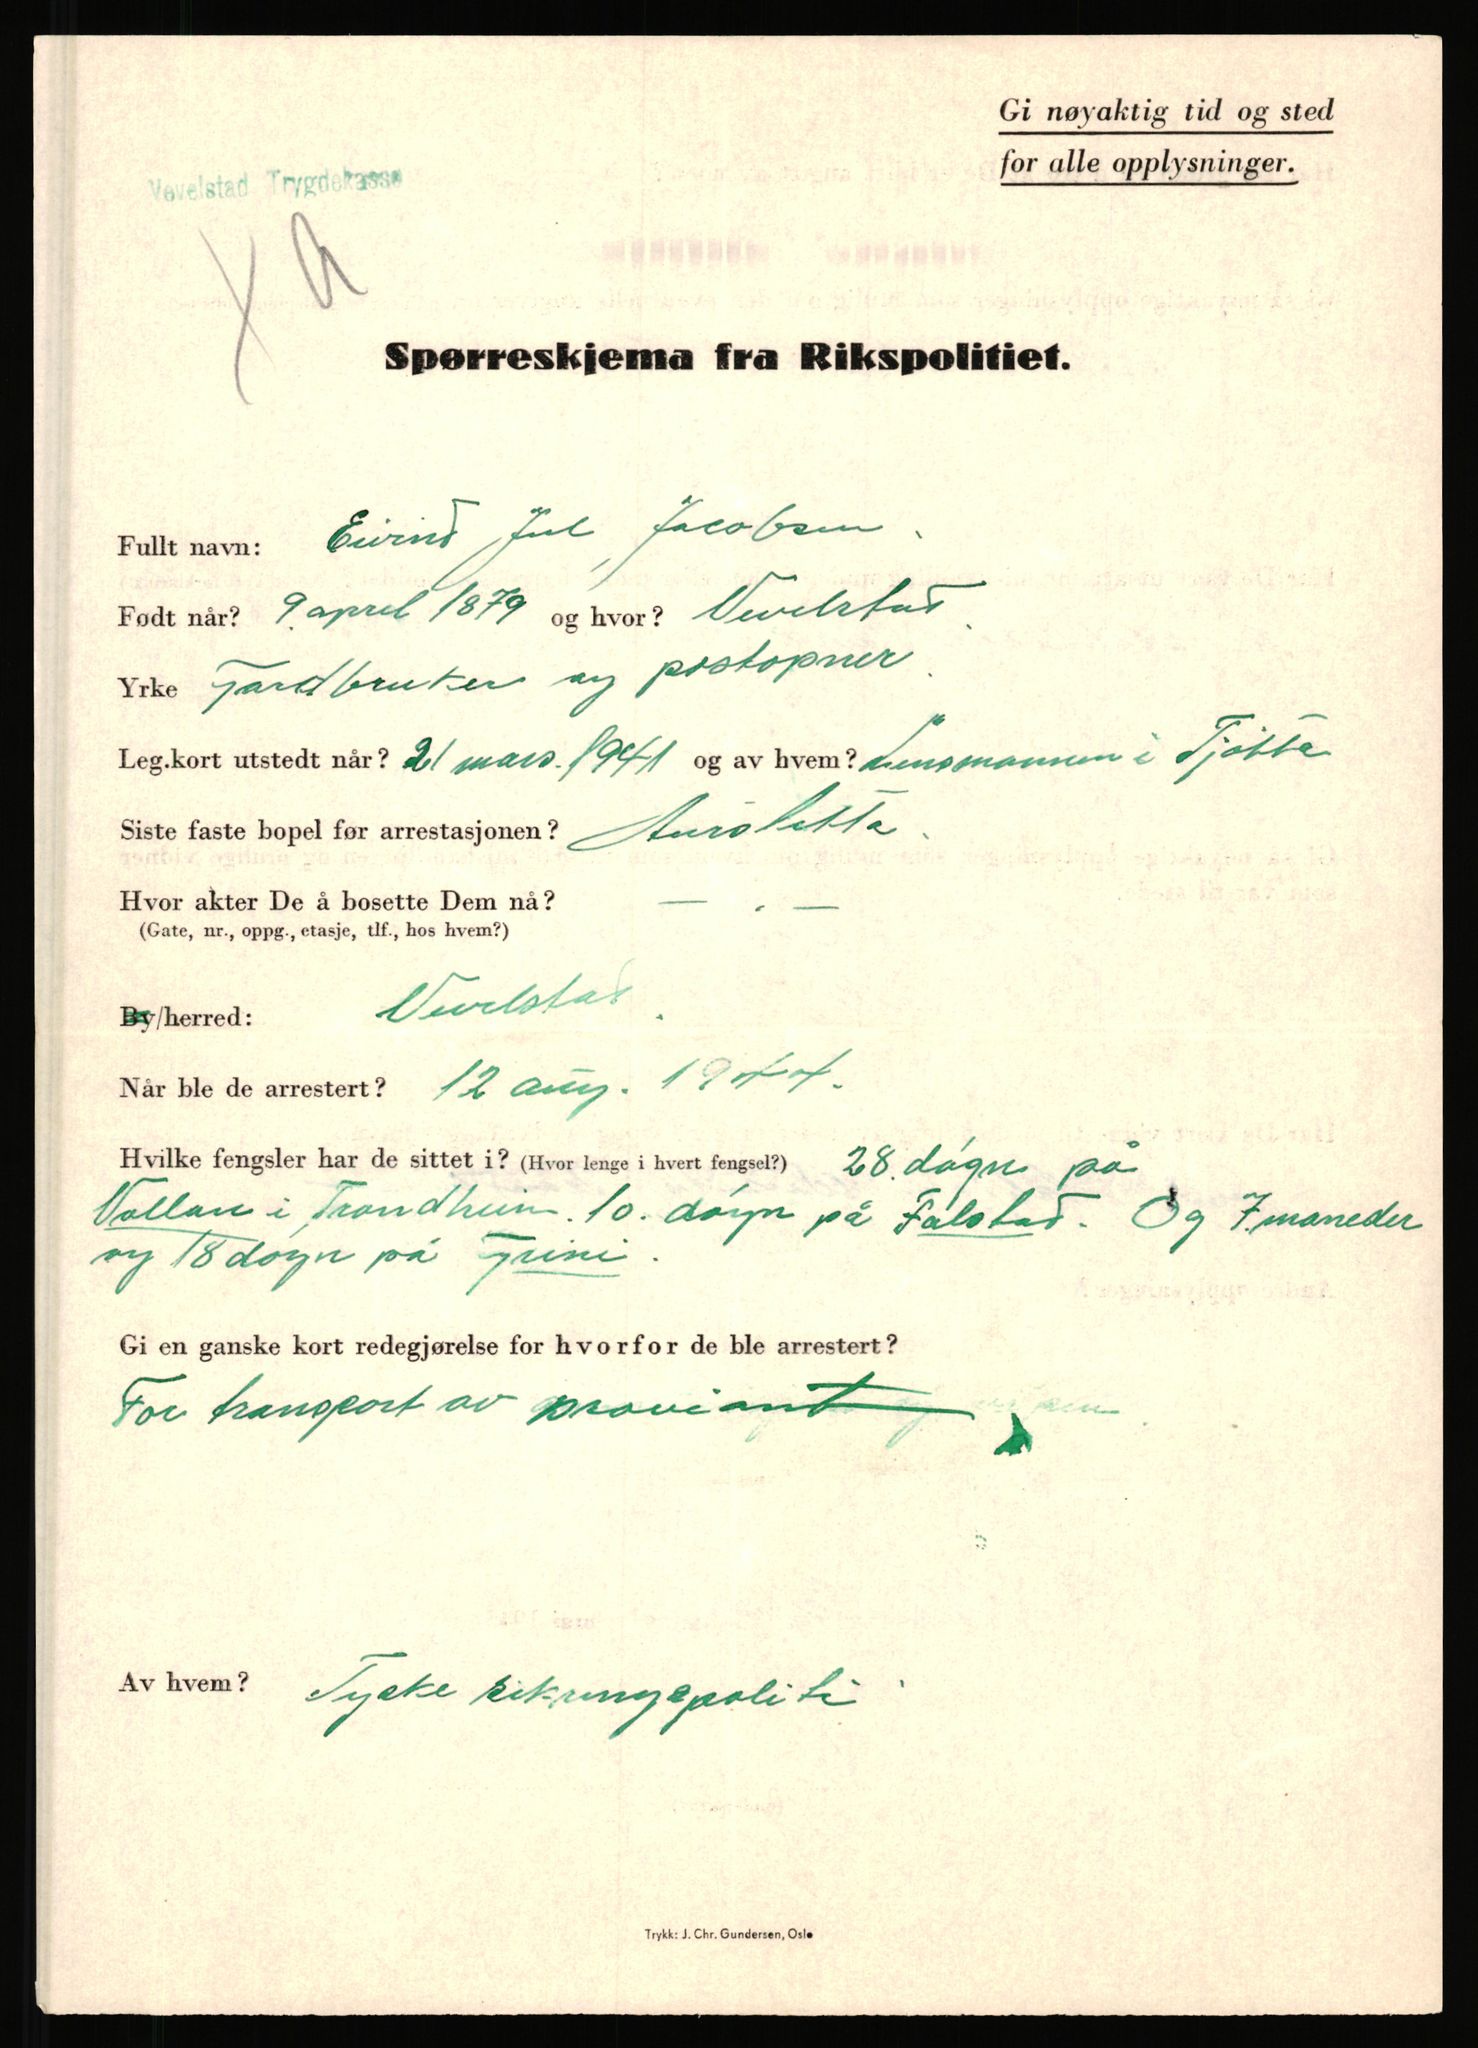 Gi nøyaktig tid og sted
for alle opplysninger.
Vevelstad Trygdekasse
X a
Spørreskjema fra Rikspolitiet.
Fullt navn: Eivind Jul Jacobsen.
Født når? 9. april 1879 og hvor? Vevelstad.
Yrke Gardbruker og postopner.
Leg.kort utstedt når? 21 mars. 1941 og av hvem? Lensmannen i Tjötta
Siste faste bopel før arrestasjonen?
Hvor akter De å bosette Dem nå? — . —
(Gate, nr., oppg., etasje, tlf., hos hvem?)
By/herred: Vevelstad.
Når ble de arrestert? 12 aug. 1944.
Hvilke fengsler har de sittet i? (Hvor lenge i hvert fengsel?) 28. dógn på
Vollan i Trondheim. 10. dógn på Falstad. Og 7. maneder
og 18 dógn på Grini.
Gi en ganske kort redegjørelse for hvorfor de ble arrestert?
For transport av proviant
Av hvem? Tyske sikringspoliti
Trykk: J. Chr. Gundersen, Oslo